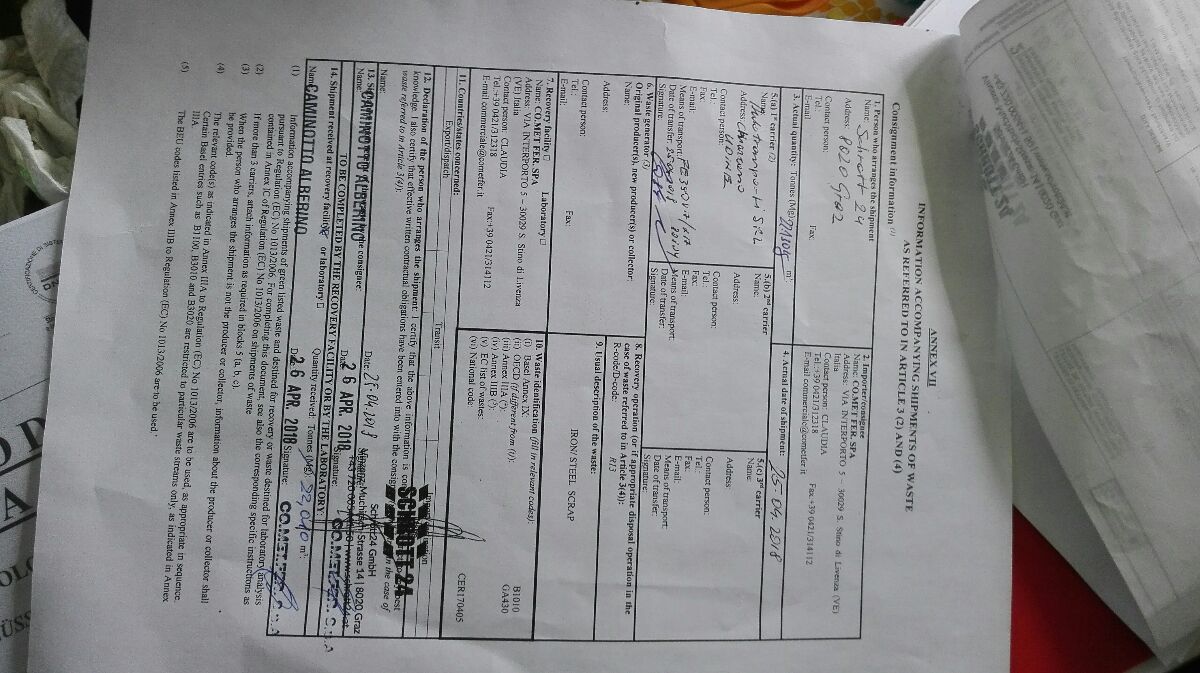 ANNEX VII
INFORMATION ACCOMPANYING SHIPMENTS OF WASTE
AS REFERRED TO IN ARTICLE 3 (2) AND (4)
Consignment information (1)
1. Person who arranges the shipment
Name: Schrott 24
Address: 8020 Graz
Contact person:
Tel.: Fax:
E-mail
2. Importer/consignee
Name: CO.MET FER. SPA
Address: VIA INTERPORTO 5 – 30029 S. Stino di Livenza (VE)
Italia
Contact person: CLAUDIA
Tel.:+39 0421/312318 Fax +39 0421/314112
E-mail commerciale@cometfer.it
3. Actual quantity: Tonnes (Mg): m³:
4. Actual date of shipment: 25.04.2018
5.(a) 1st carrier (2)
Name:
Address:
UDINE
Contact person:
Tel.:
Fax:
E-mail:
Means of transport:
Date of transfer:
Signature:
5.(b) 2nd carrier
Name:
Address:
Contact person:
Tel.:
Fax:
E-mail:
Means of transport:
Date of transfer:
Signature:
5.(c) 3rd carrier
Name:
Address:
Contact person:
Tel.:
Fax:
E-mail:
Means of transport:
Date of transfer:
Signature:
6. Waste generator (3)
Original producer(s), new producer(s) or collector:
Name:
Address:
Contact person:
Tel.: Fax:
E-mail:
8. Recovery operation (or if appropriate disposal operation in the
case of waste referred to in Article 3(4)):
R-code/D-code: R13
9. Usual description of the waste:
IRON/ STEEL SCRAP
7. Recovery facility □ Laboratory □
Name: CO.MET FER. SPA
Address: VIA INTERPORTO 5 – 30029 S. Stino di Livenza
(VE) Italia
Contact person: CLAUDIA
Tel.:+39 0421/312318 Fax:+39 0421/314112
E-mail commerciale@cometfer.it
10. Waste identification (fill in relevant codes):
(i) Basel Annex IX: B1010
(ii) OECD (if different from (i)): GA430
(iii) Annex IIIA (4):
(iv) Annex IIIB (5):
(v) EC list of wastes: CER170405
(vi) National code:
11. Countries/states concerned:
Export/dispatch Transit
12. Declaration of the person who arranges the shipment: I certify that the above information is
knowledge. I also certify that effective written contractual obligations have been entered into with the consignee
waste referred to in Article 3(4)):
Name: Date: 25.04.2018
SCHROTT 24
Schrott24 GmbH
Strasse 14 | 8020 Graz
13. the consignee:
Name: CAMINOTTO ALBERINO Date: 26 APR. 2018 Signature: CO.MET.FER. S.P.A.
TO BE COMPLETED BY THE RECOVERY FACILITY OR BY THE LABORATORY
14. Shipment received at recovery facility or laboratory □ Quantity received: Tonnes (Mg): 22,040 m³:
Name: CAMINOTTO ALBERINO Date: 26 APR. 2018 Signature: CO.MET.FER. S.P.A.
(1) Information accompanying shipments of green listed waste and destined for recovery or waste destined for laboratory analysis
pursuant to Regulation (EC) No 1013/2006. For completing this document, see also the corresponding specific instructions as
contained in Annex IC of Regulation (EC) No 1013/2006 on shipments of waste
(2) If more than 3 carriers, attach information as required in blocks 5 (a, b, c).
(3) When the person who arranges the shipment is not the producer or collector, information about the producer or collector shall
be provided.
(4) The relevant code(s) as indicated in Annex IIIA to Regulation (EC) No 1013/2006 are to be used, as appropriate in sequence.
Certain Basel entries such as B1100, B3010 and B3020 are restricted to particular waste streams only, as indicated in Annex
IIIA.
(5) The BEU codes listed in Annex IIIB to Regulation (EC) No 1013/2006 are to be used